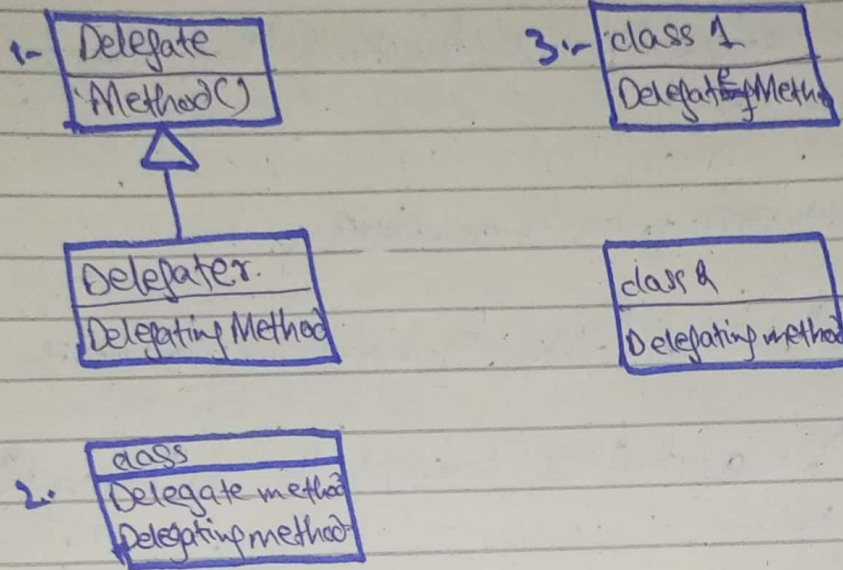 1- Delegate
Method()
Delegater.
Delegating Method
2. class
Delegate method
Delegating method
3:- class 1
Delegate Metho
class 2
Delegating method